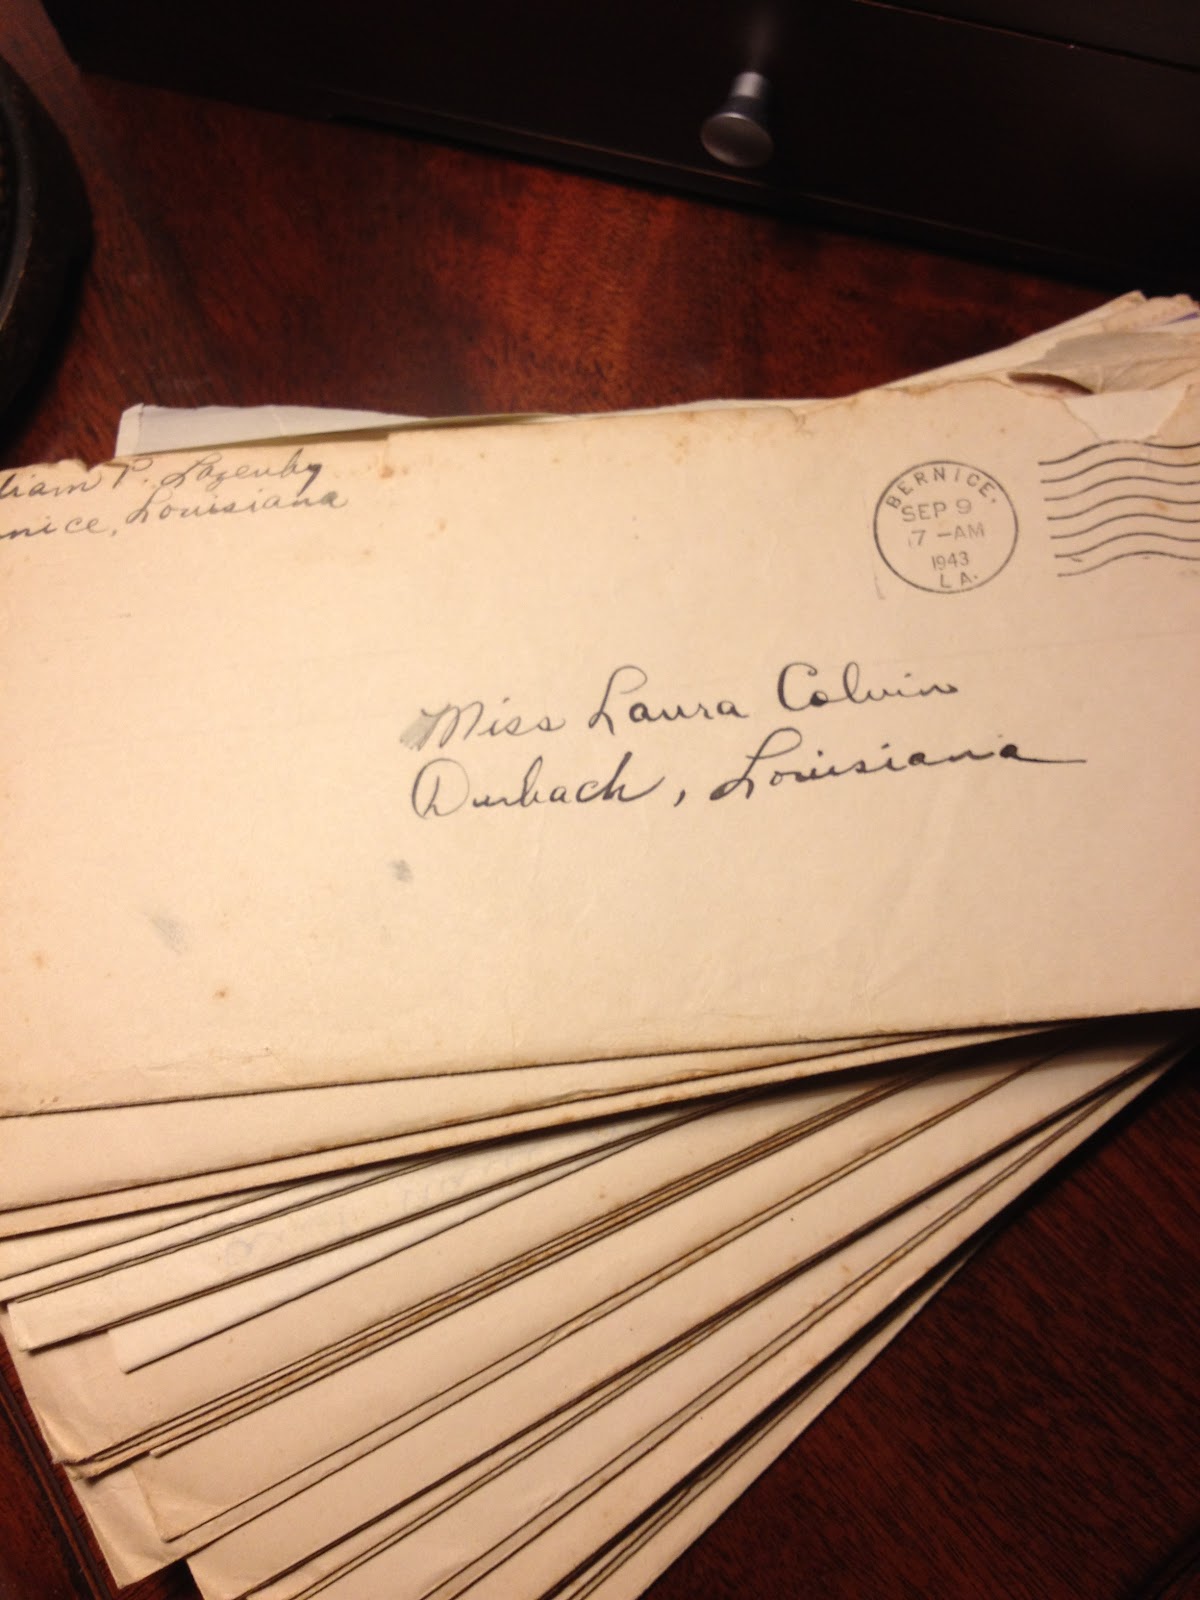 liam P. Lazenby
nice, Louisiana
BERNICE,
SEP 9
7-AM
1943
LA.
Miss Laura Colvin
Dubach, Louisiana